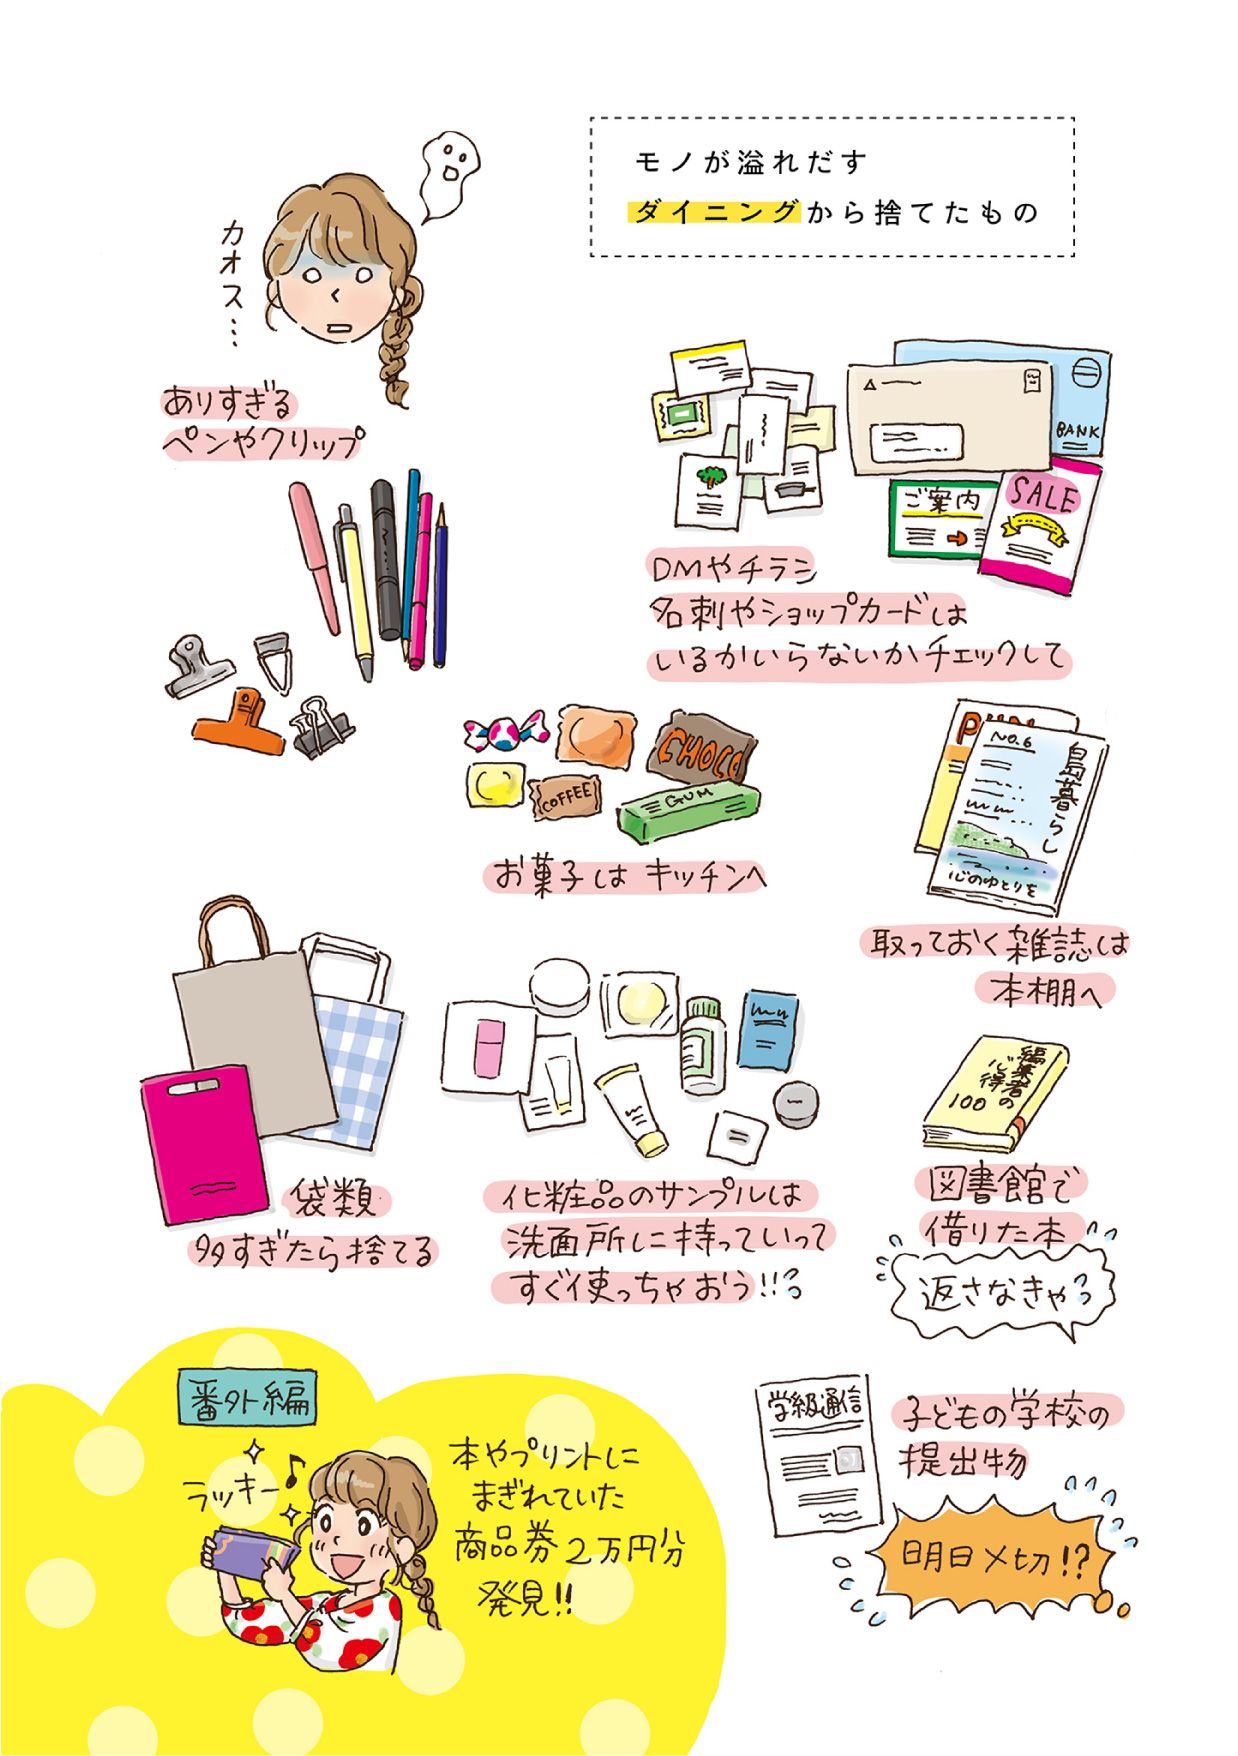 モノが溢れだす
ダイニングから捨てたもの
カオス…
ありすぎる
ペンやクリップ
BANK
ご案内
SALE
DMやチラシ
名刺やショップカードは
いるかいらないかチェックして
CHOCO
COFFEE
GUM
お菓子は キッチンへ
NO.6
島暮らし
心のゆとりを
取っておく雑誌は
本棚へ
袋類
多すぎたら捨てる
化粧品のサンプルは
洗面所に持っていって
すぐ使っちゃおう!!
編集者の
心得
100
図書館で
借りた本
返さなきゃ
学級通信
子どもの学校の
提出物
明日〆切!?
番外編
ラッキー♪
本やプリントに
まぎれていた
商品券2万円分
発見!!